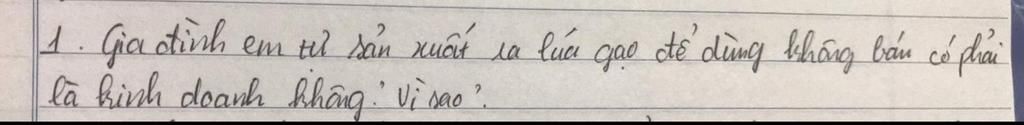 1. Gia đình em tự sản xuất ra lúa gạo để dùng không bán có phải
là kinh doanh không? Vì sao?